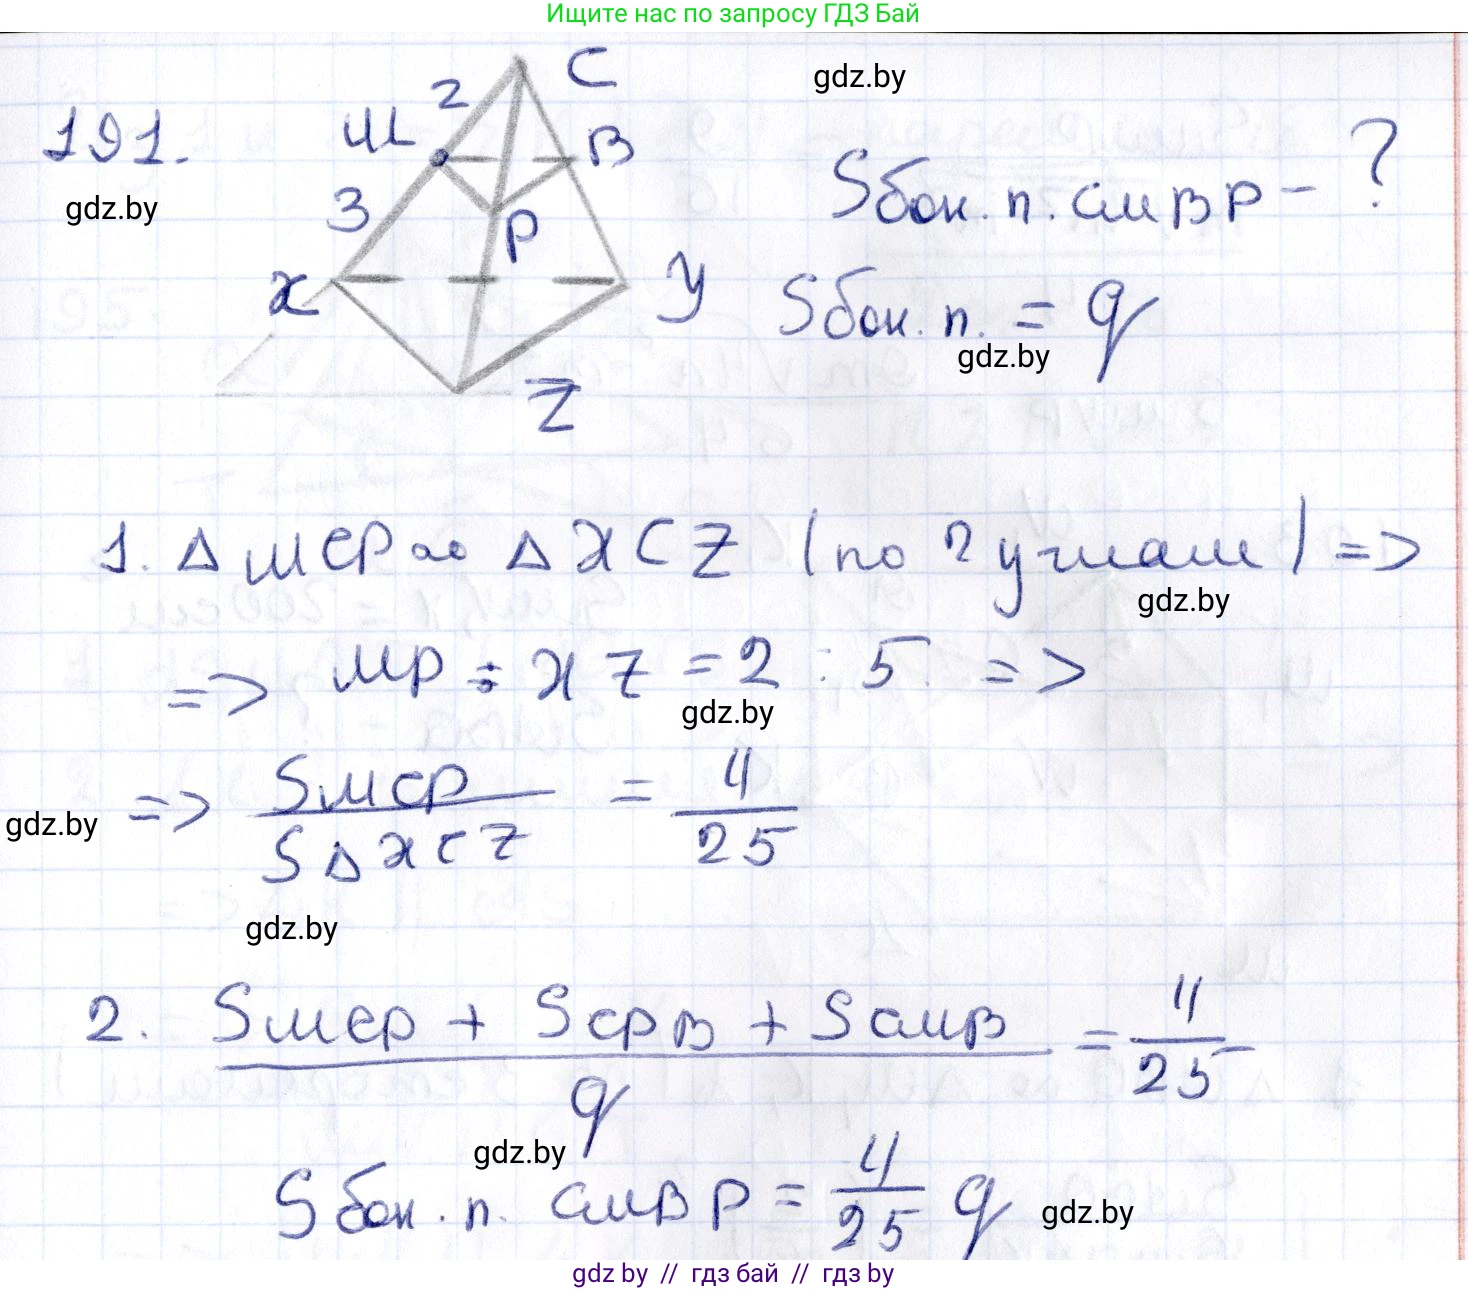 Ищите нас по запросу ГДЗ Бай
gdz.by
191.
gdz.by
C
2
M
B
3
P
X
Y
Z
Sбок. п. CMBP - ?
Sбок. п. = q
gdz.by
1. Δ MCP ∾ Δ XCZ (по 2 углам) =>
gdz.by
=> MP : XZ = 2 : 5 =>
gdz.by
=> SMCP / SΔXCZ = 4/25
gdz.by
gdz.by
2. (SMCP + SCPB + SCMB) / q = 4/25
gdz.by
Sбок. п. CMBP = 4/25 q
gdz.by
gdz by // гдз бай // гдз by